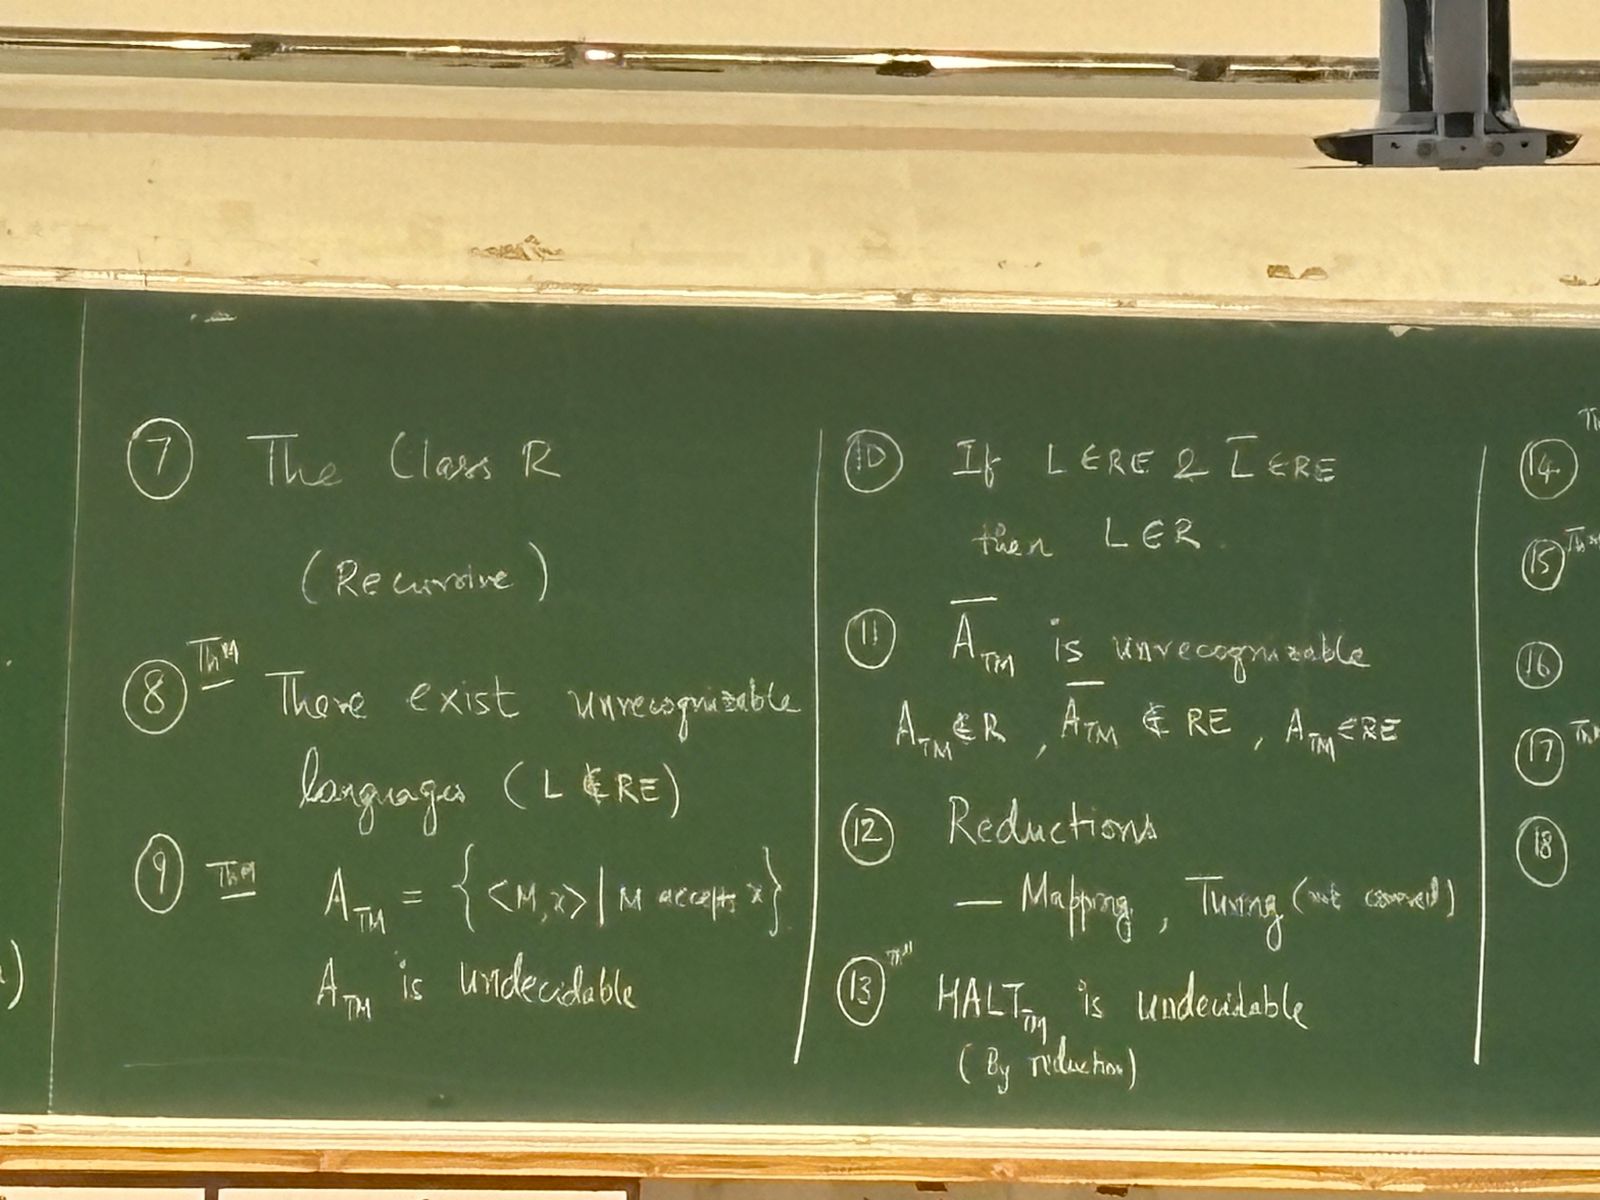 ⑦ The Class R
(Recursive)
⑧ Thm There exist unrecognizable
languages (L ∉ RE)
⑨ Thm A_TM = {<M,x> | M accepts x}
A_TM is undecidable
⑩ If L ∈ RE & L̅ ∈ RE
then L ∈ R.
⑪ A̅_TM is unrecognizable
A_TM ∉ R, A̅_TM ∉ RE, A_TM ∈ RE
⑫ Reductions
— Mapping, Turing (not covered)
⑬ Thm HALT_TM is undecidable
(By reduction)
⑭ Th
⑮ Thm
⑯
⑰ Th
⑱